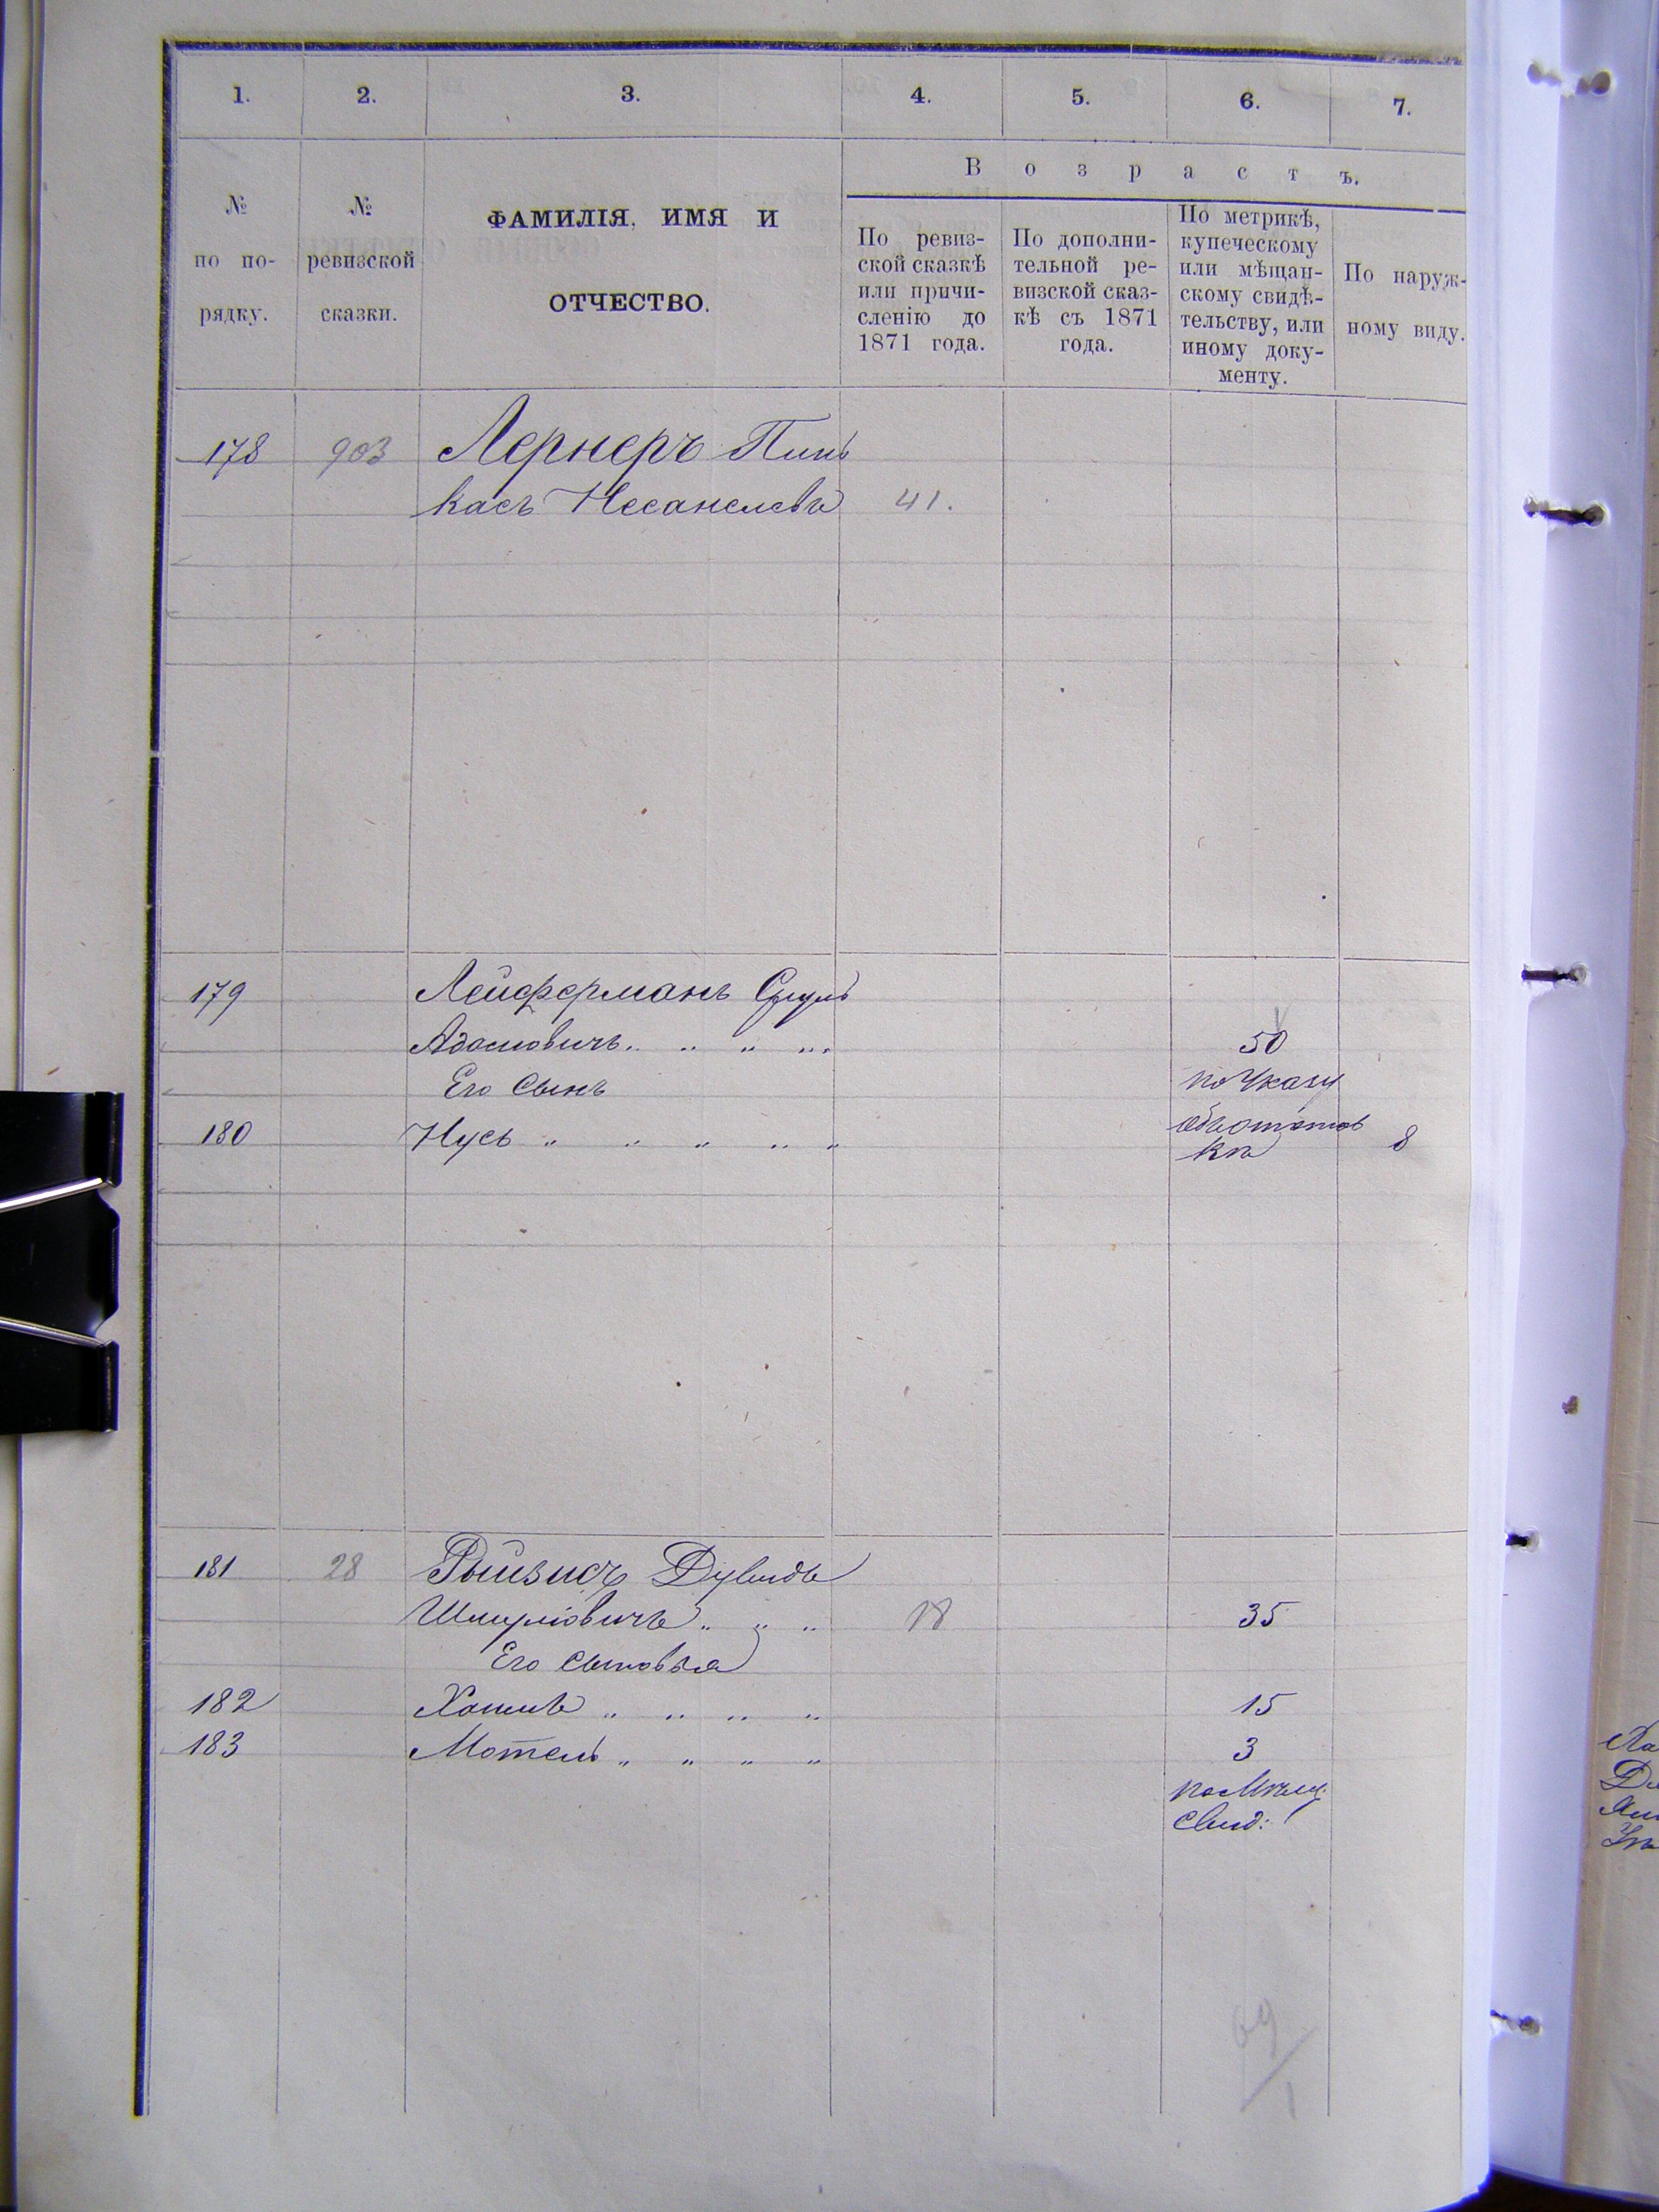 1. 2. 3. 4. 5. 6. 7.
В о з р а с т ъ.
№ по по- рядку.
№ ревизской сказки.
ФАМИЛІЯ, ИМЯ И ОТЧЕСТВО.
По ревиз-
ской сказкѣ
или причи-
сленію до
1871 года.
По дополни-
тельной ре-
визской сказ-
кѣ съ 1871
года.
По метрикѣ,
купеческому
или мѣщан-
скому свидѣ-
тельству, или
иному доку-
менту.
По наруж-
ному виду.
178 903 Лернеръ Пинь
касъ Несанелевъ 41.
179 Лейферманъ Сруль
Адамовичъ 50
Его Сынъ по Указу
180 Нусь " " " " " 8
ка
181 28 Дувидъ
Шмулiовичъ " " " 18 35
Его сыновья
182 Хаимъ " " " " 15
183 Мотель " " " " 3
по Мѣщ.
Свид:
69
1